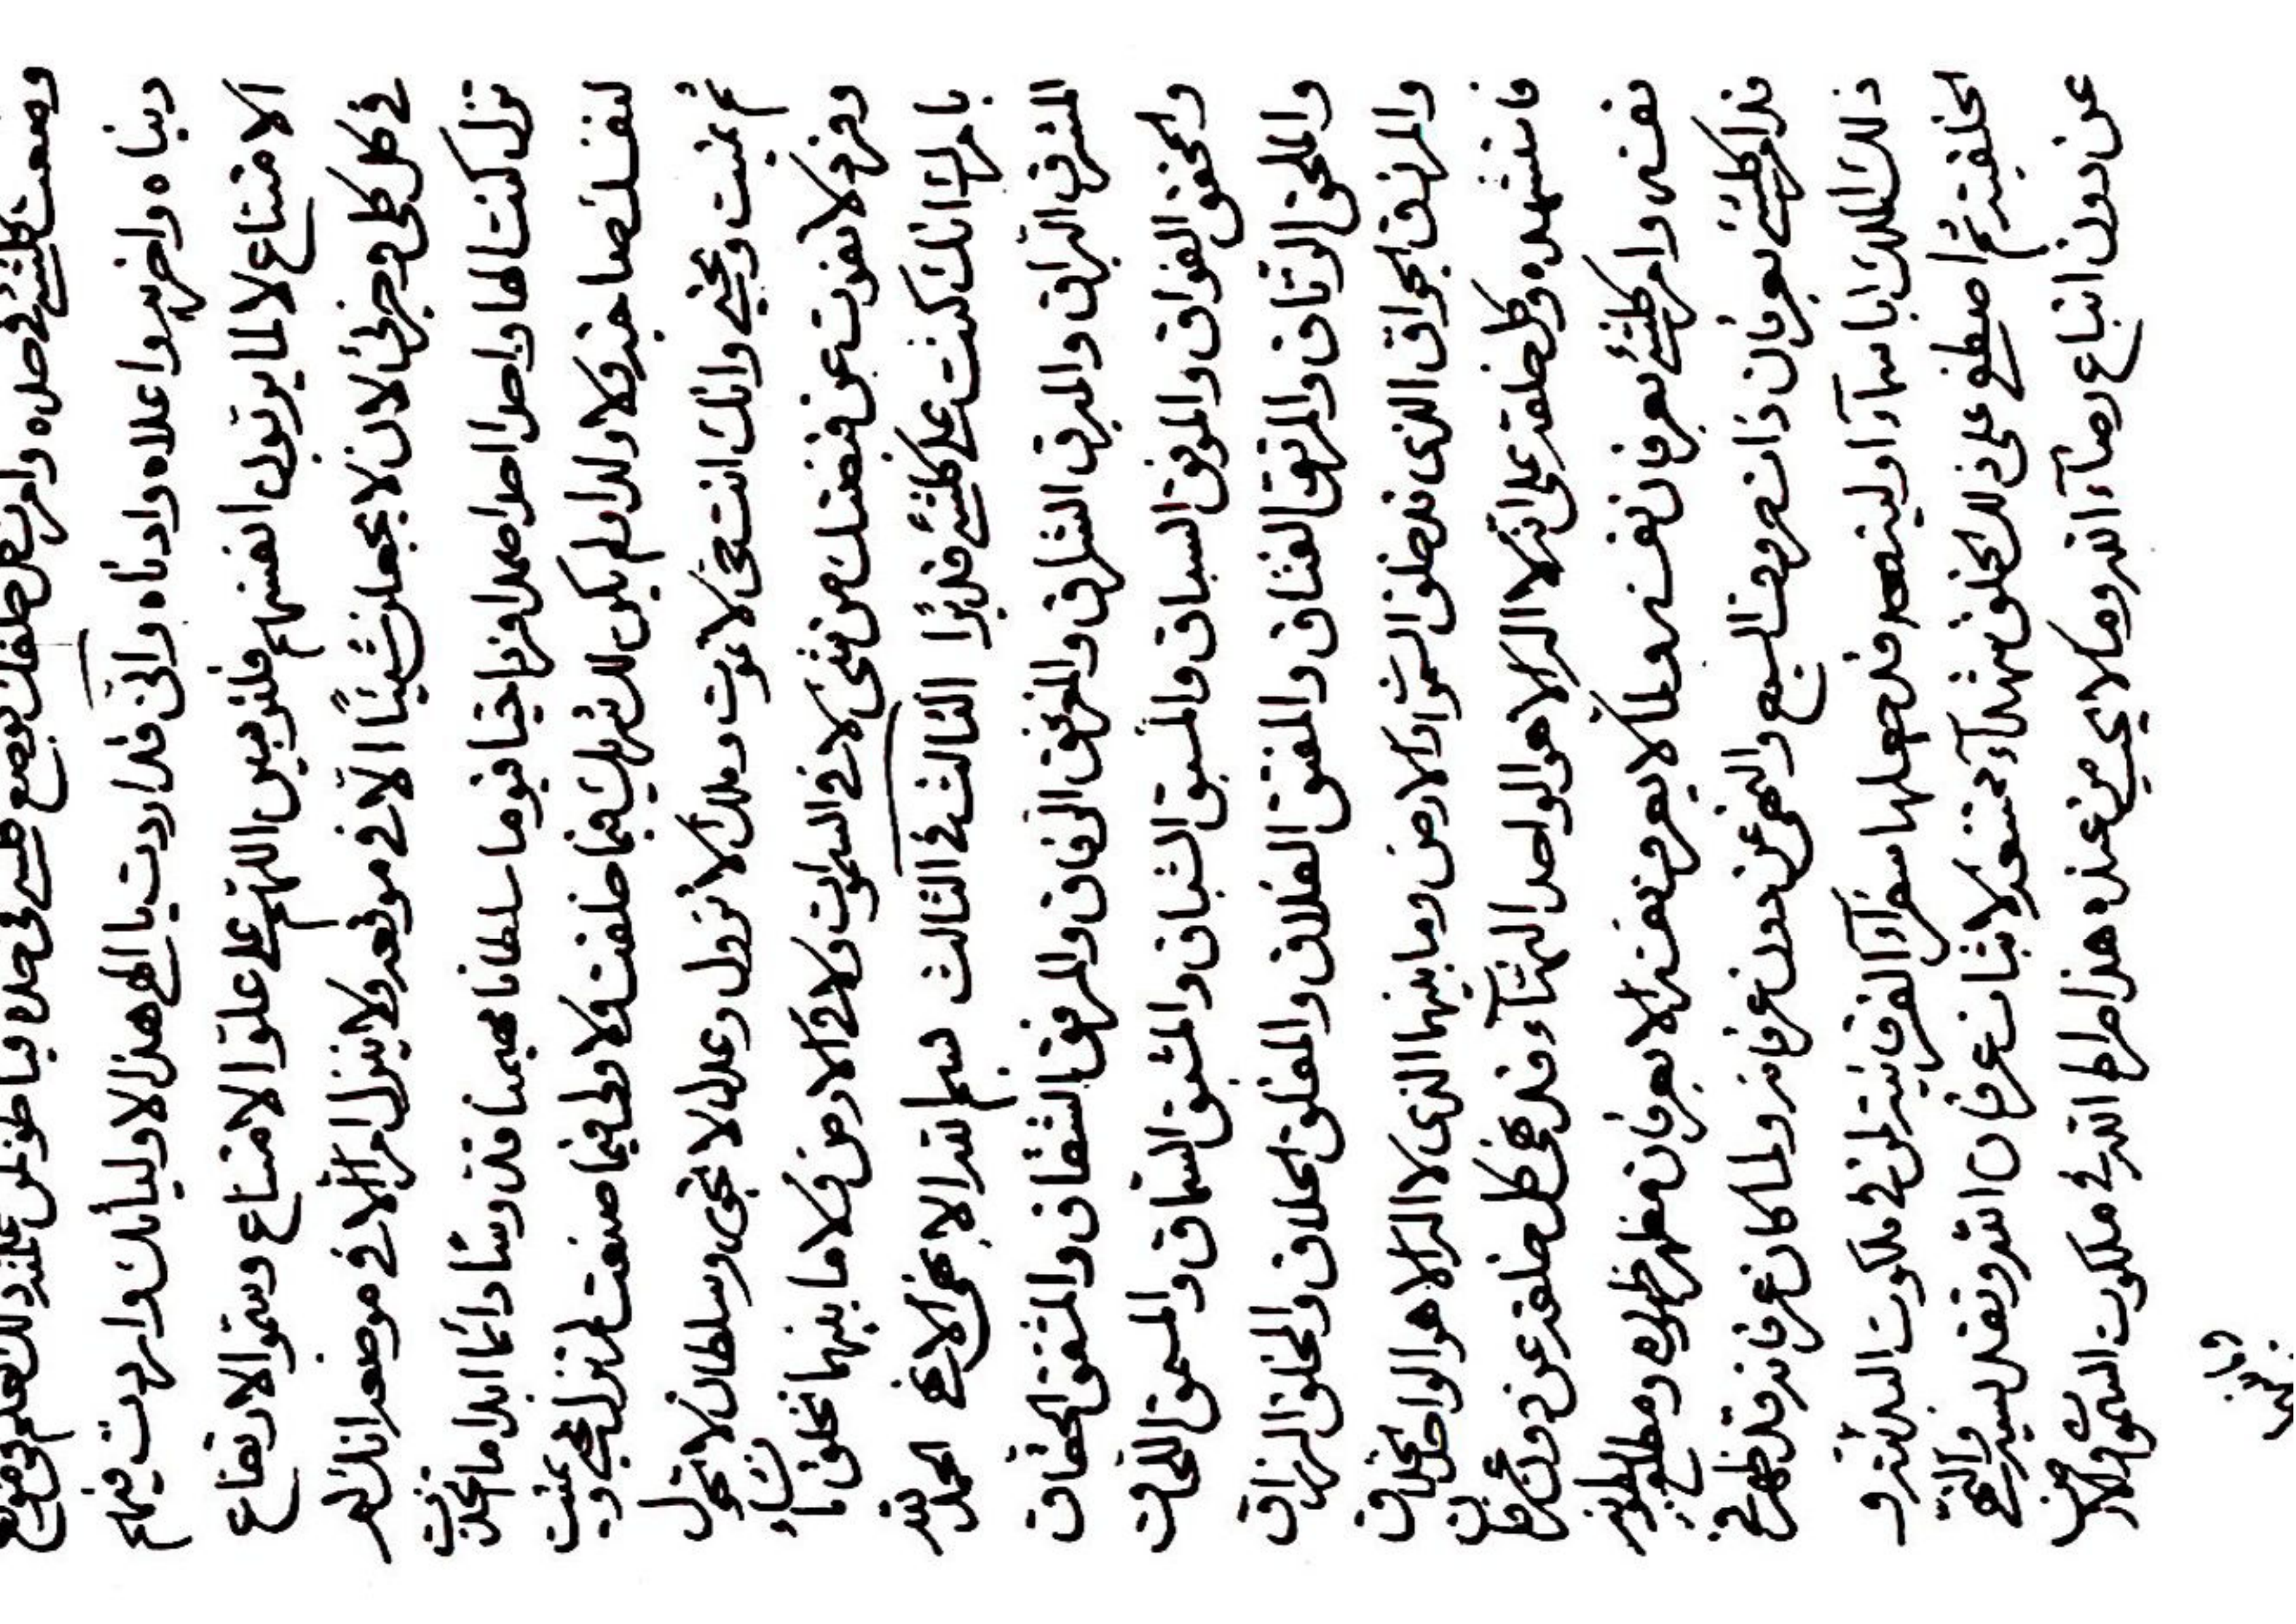 وضعت كلشيء في حده وامرت كل خلقك بوضع كلشيء في حده فيا طوبى لمن عنده ذلك العلم في
دنياه واخريه واعلاه وادناه وانى قد اردت يا الهي هذا لاوليائك واردت فيهم
الامتناع لا لما يريدون انفسهم اللهم على علو الامتناع وسمو الارتفاع
في كل كلى وجزئى لان لا يجعلن شيئا الا في موقعه ولا ينزل امر الا في موضعه انك لم
تزل كنت الها واحدا احدا صمدا فردا حيا قيوما سلطانا مهيمنا قدوسا دائما ابدا ما اتخذت
لنفسك صاحبة ولا ولدا ولم يكن لك شريك فيما خلقت ولا ولى فيما صنعت لم تزل تحيي وتميت
ثم تميت وتحيي وانك انت حى لا تموت وملك لا تزول وعدل لا تجور وسلطان لا تحول
وفرد لا يفوت عن قبضتك من شئ لا في السموات ولا في الارض ولا ما بينهما تخلق ما تشاء
بامرك انك كنت على كلشيء قديرا الثالث في الثالث بسم الله الابهى الابهى الحمد لله
المشرق البراق والمبرق الشراق والمرفق الشقاق والمشقق الحقاق
والمحقق الفواق والموفق السباق والمسبق الشباق والمشبق السماق والمسمق اللحاق
والملحق الرتاق والمرتق الفتاق والمفتق الفلاق والمفلق الخلاق والمخلق الرزاق
والمرزق الجواق الذى قد خلق السموات والارض وما بينهما الذى لا اله الا هو الواحد الخلاق
فاستشهده وكل خلقه على انه لا اله الا هو الواحد البهاء وقد نهى كل خلقه عن دون
نفسه وامر كلشيء بعرفان نفسه ولما لا يعرف نفسه الا بعرفان مظهر ظهوره ومطلع
قد امر كلشيء بعرفان ذات حروف السبع والنهى عن دون عرفانه ولما كان عرفانه قد ظهر في
ذلك الملك ابا سماء او لينصر قد جعلها سفراء الفرقانية لمن في ملكوت البدئية و
الخلقية ثم اصطفى على ذلك الخلق شهداء لاثبات عرفان الله ونفى والنهى
عن دون اتباع رضاء الله وما لا يحب من عنده هذا صراط الله في ملكوت السموات والارض